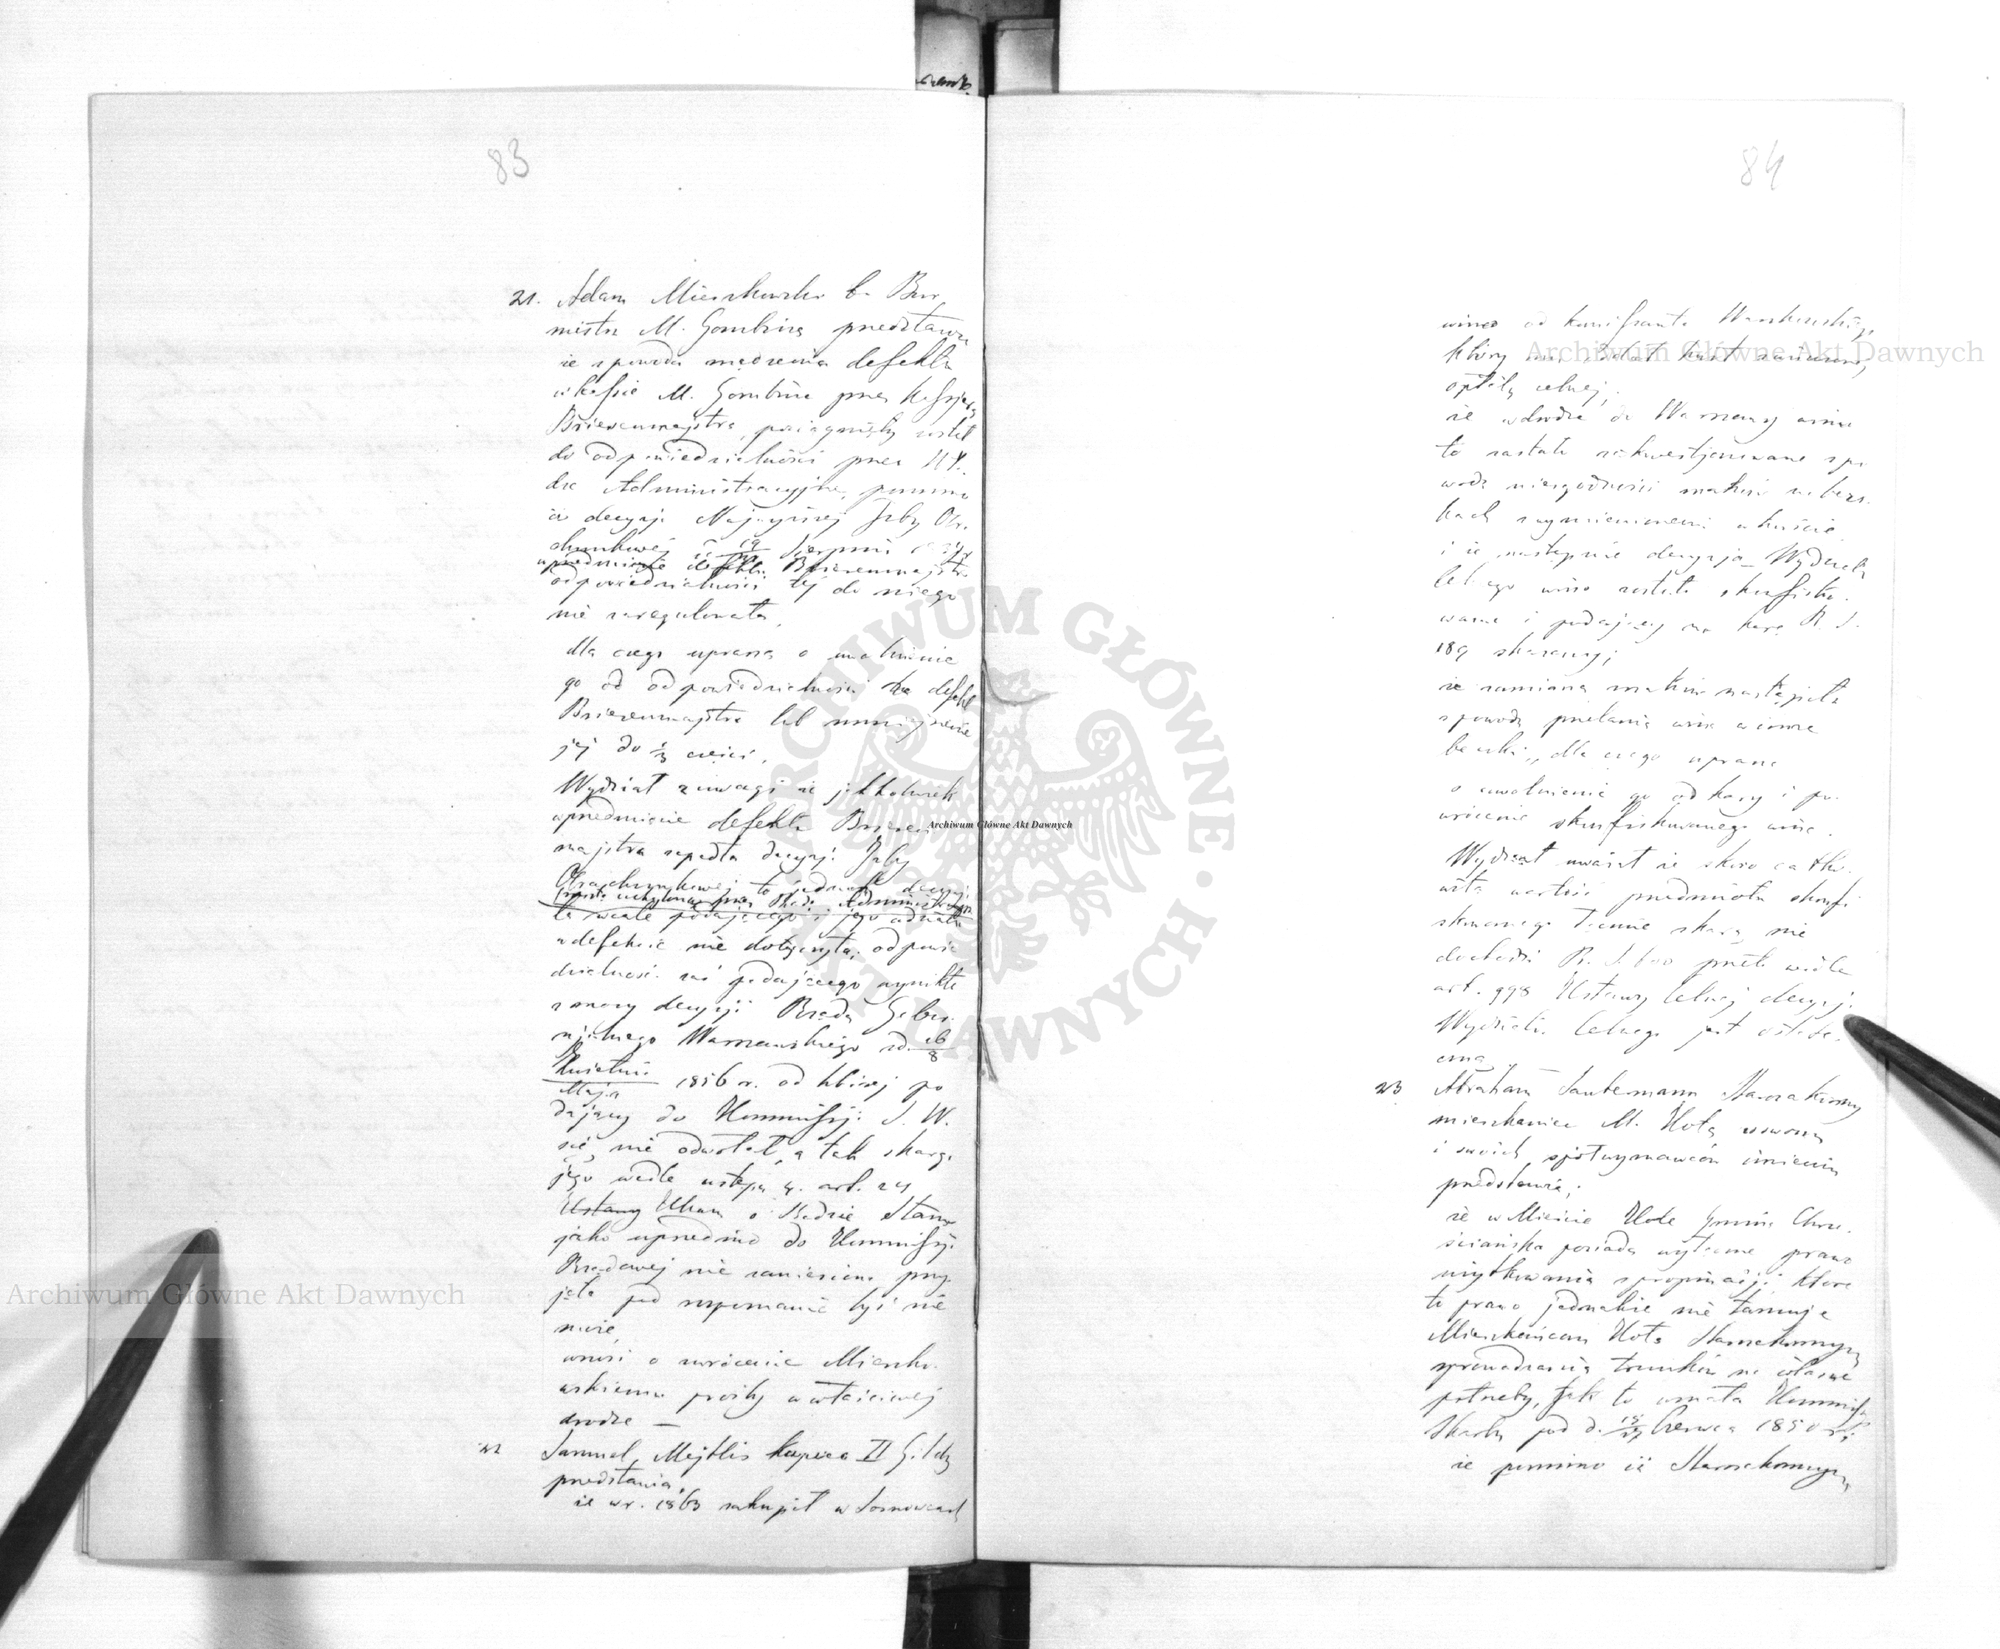 83
21. Adam Mieszkowski b. Bur,
mistrz M. Gombina przedstawia
że z powodu defektu
w kassie M. Gombina przez Kassjera
Brisenmajstra, pociągnięty został
do odpowiedzialności przez
dze Administracyjne, pomimo
iż decyzją Najwyższej Izby Ob,
chunkowej 19 Sierpnia
uprzednio Brisenmajstra
odpowiedzialności tej do niego
nie
dla czego uprasza o uwolnienie
go od odpowiedzialności za defekt
Brisenmajstra lub zmniejszenie
jej do 1/3 części.
Wydział z uwagi że jakkolwiek
w przedmiocie defektu
majstra zapadła decyzja Izby
Obrachunkowej to jednak decyzja
przez Radę Administracyjną
ta wcale podającego i jego udziału
w defekcie nie dotyczyła, odpowie
dzialność zaś podającego wynikła
z mocy decyzji Rządu Guber,
njalnego Warszawskiego z d. 26/8
Kwietnia
Maja 1856 r. od której po
dający do Kommissji S. W.
się nie odwołał, a tak skarga
jego wedle ustępu 4. art. 24
Ustawy o Radzie Stanu
jako uprzednio do Kommissji
Rządowej nie zaniesiona przy,
jęta pod rozpoznanie być nie
może,
wnosi o zwrócenie Mieszko,
wskiemu prośby w właściwej
drodze —
22 Samuel Mejtlis kupiec II Gildy
przedstawia,
że w r. 1863 zakupił w Sosnowcach
84
wino od
który
opłatą celnej;
że w drodze do Warszawy wino
to zostało zakwestjonowane z po
wodu niezgodności marków na becz,
kach z wymienionemi w kwicie
i że następnie decyzją Wydziału
Celnego wino zostało skonfisko,
wane i podający na karę R. S.
189 skazany;
że zamiana marków nastąpiła
z powodu przelania wina w inne
beczki, dla czego uprasza
o uwolnienie go od kary i po,
wrócenie skonfiskowanego wina.
Wydział uważał że skoro całko,
wita wartość przedmiotu skonfi
skowanego łącznie z karą nie
dochodzi R. S. 600 przeto wedle
art. 998 Ustawy Celnej decyzja
Wydziału Celnego jest ostate,
czną
23 Abraham Lauterman Starozakonny
mieszkaniec M. Koła, swoim
i swoich spółwyznawców imieniem
przedstawia;
że w Mieście Kole Gmina Chrze,
ściańska posiada wyłączne prawo
użytkowania z propinacji, które
to prawo jednakże nie tamuje
Mieszkańcom Koła Starozakonnym
sprowadzania trunków na własne
potrzeby, jak to uznała Kommissja
Skarbu pod d. 15/27 Czerwca 1850 r;
że pomimo iż Starozakonnym
Archiwum Główne Akt Dawnych
Archiwum Główne Akt Dawnych
Archiwum Główne Akt Dawnych
ARCHIWUM GŁÓWNE AKT DAWNYCH